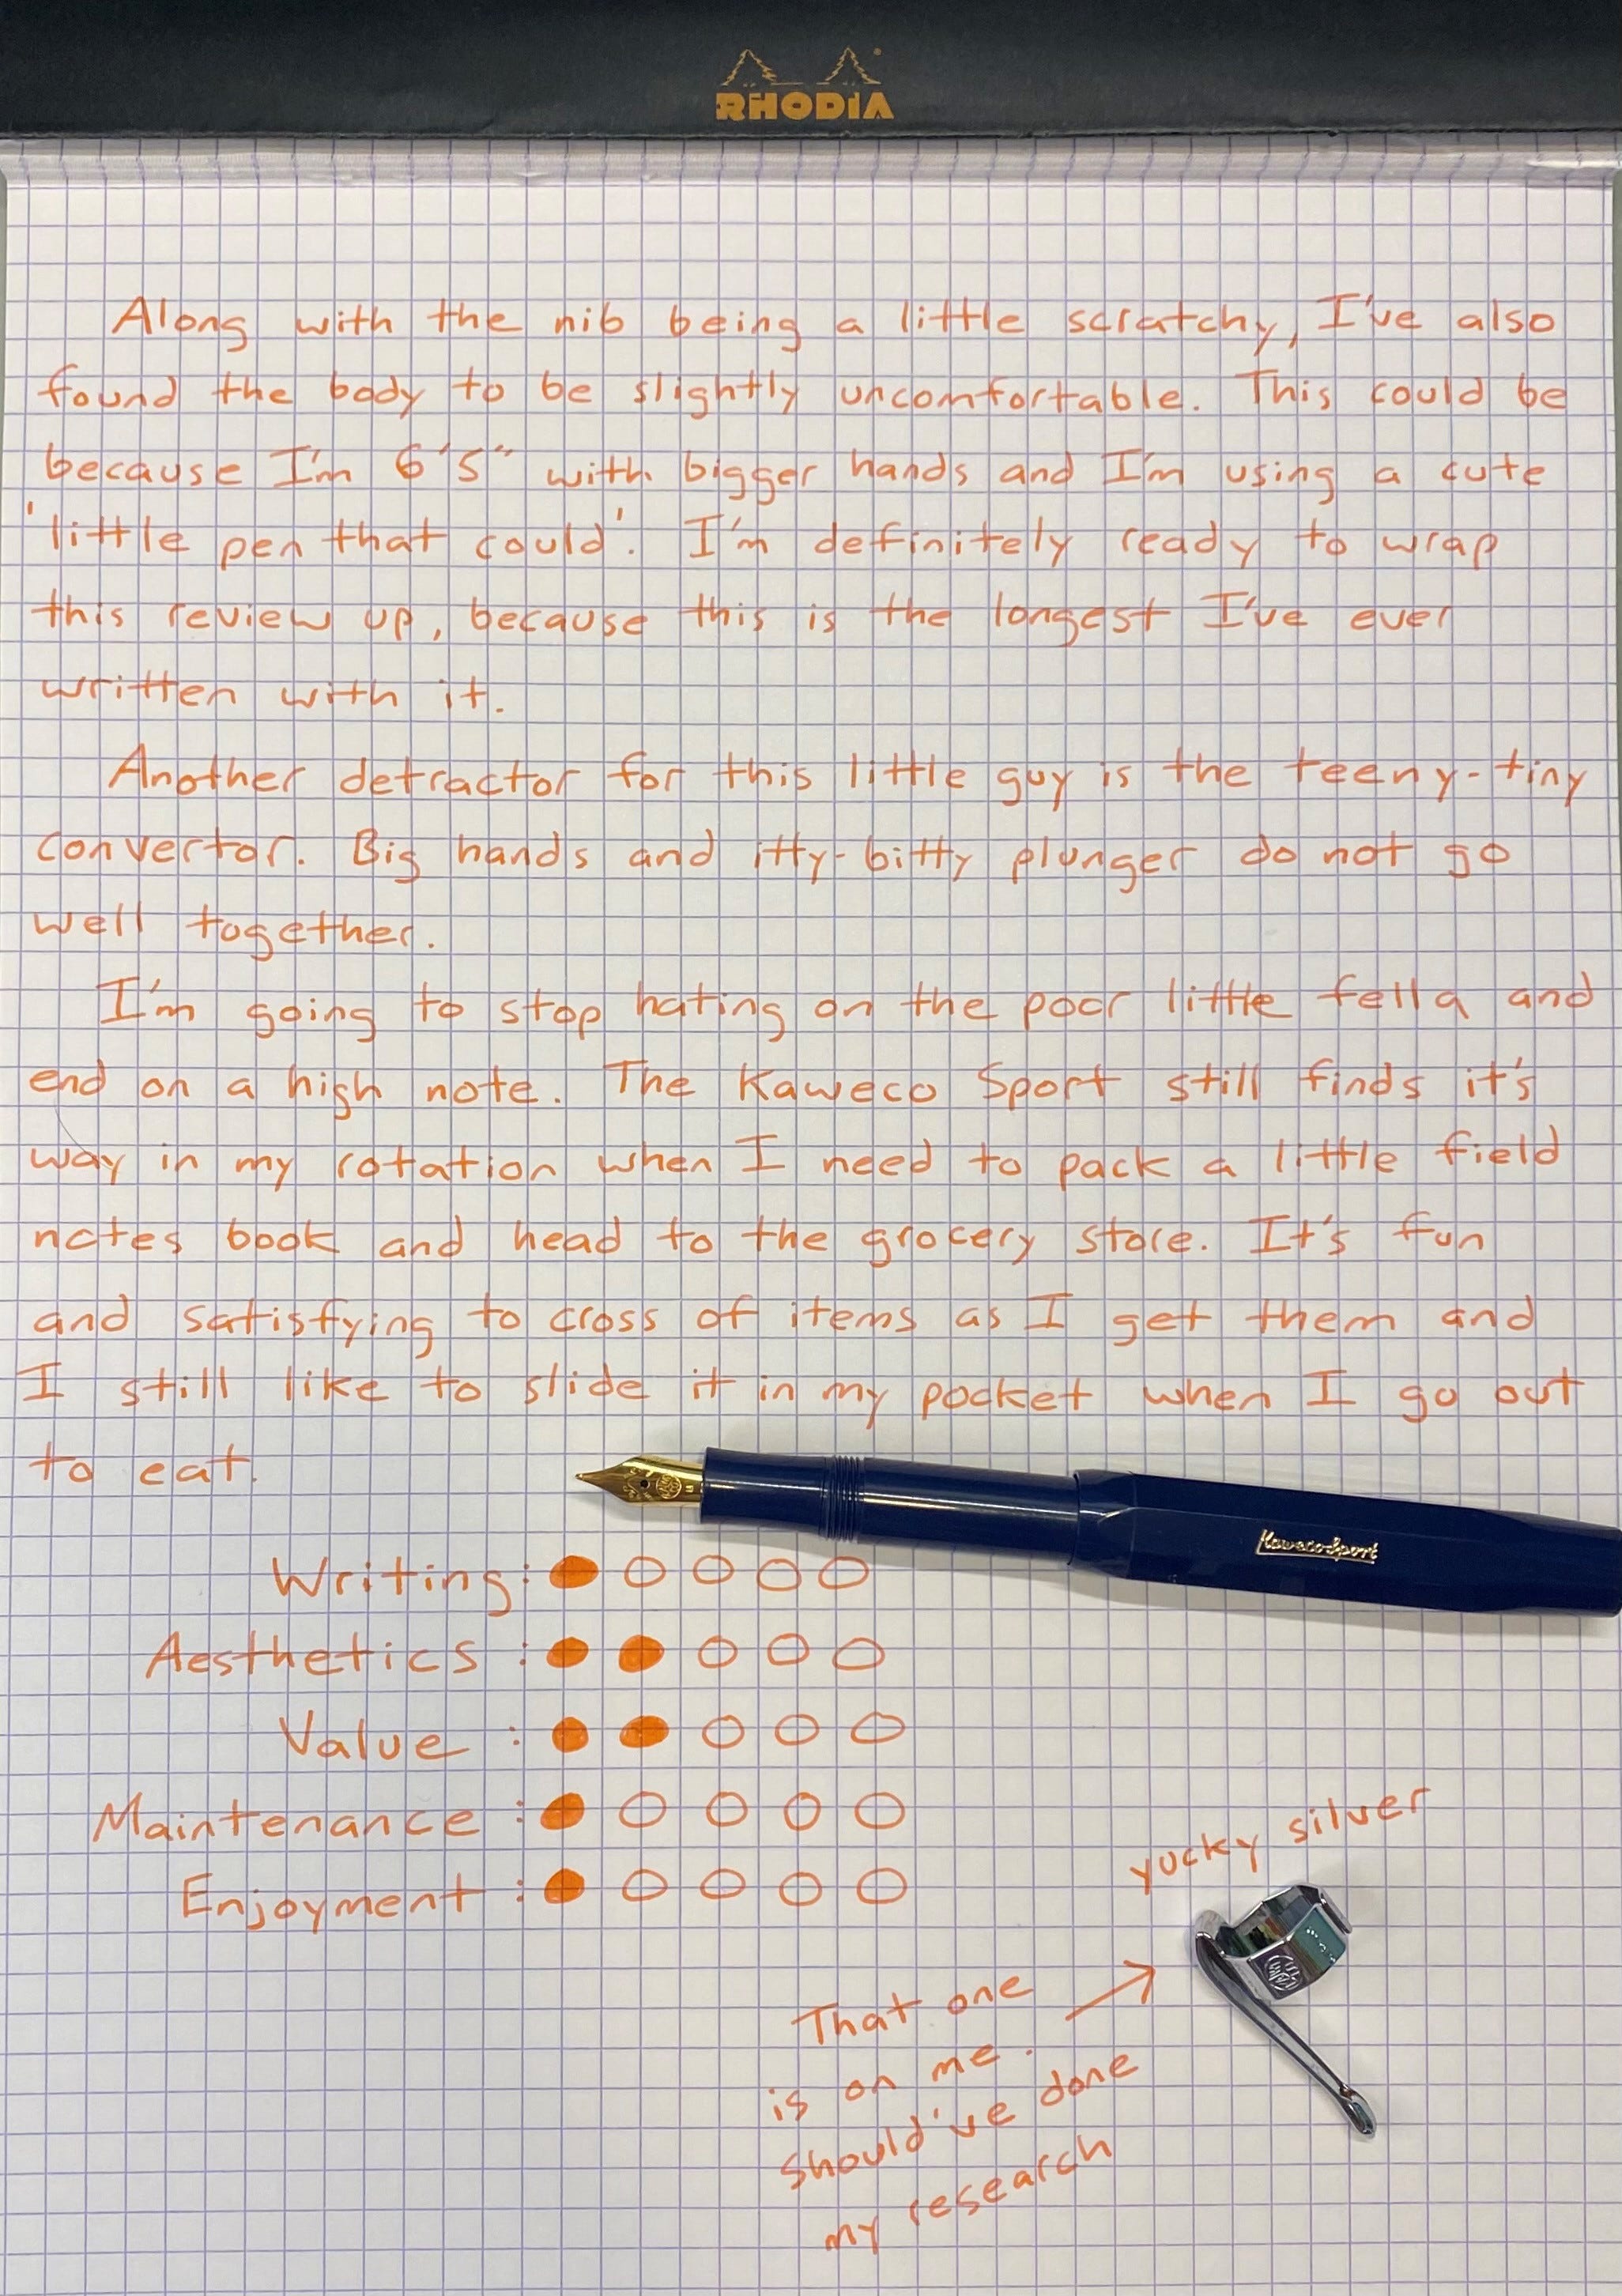 RHODIA
Along with the nib being a little scratchy, I've also
found the body to be slightly uncomfortable. This could be
because I'm 6'5" with bigger hands and I'm using a cute
'little pen that could'. I'm definitely ready to wrap
this review up, because this is the longest I've ever
written with it.
Another detractor for this little guy is the teeny-tiny
convertor. Big hands and itty-bitty plunger do not go
well together.
I'm going to stop hating on the poor little fella and
end on a high note. The Kaweco Sport still finds it's
way in my rotation when I need to pack a little field
notes book and head to the grocery store. It's fun
and satisfying to cross of items as I get them and
I still like to slide it in my pocket when I go out
to eat.
Kaweco Sport
Writing:
Aesthetics :
Value :
Maintenance :
Enjoyment :
yucky silver
That one
is on me.
Should've done
my research